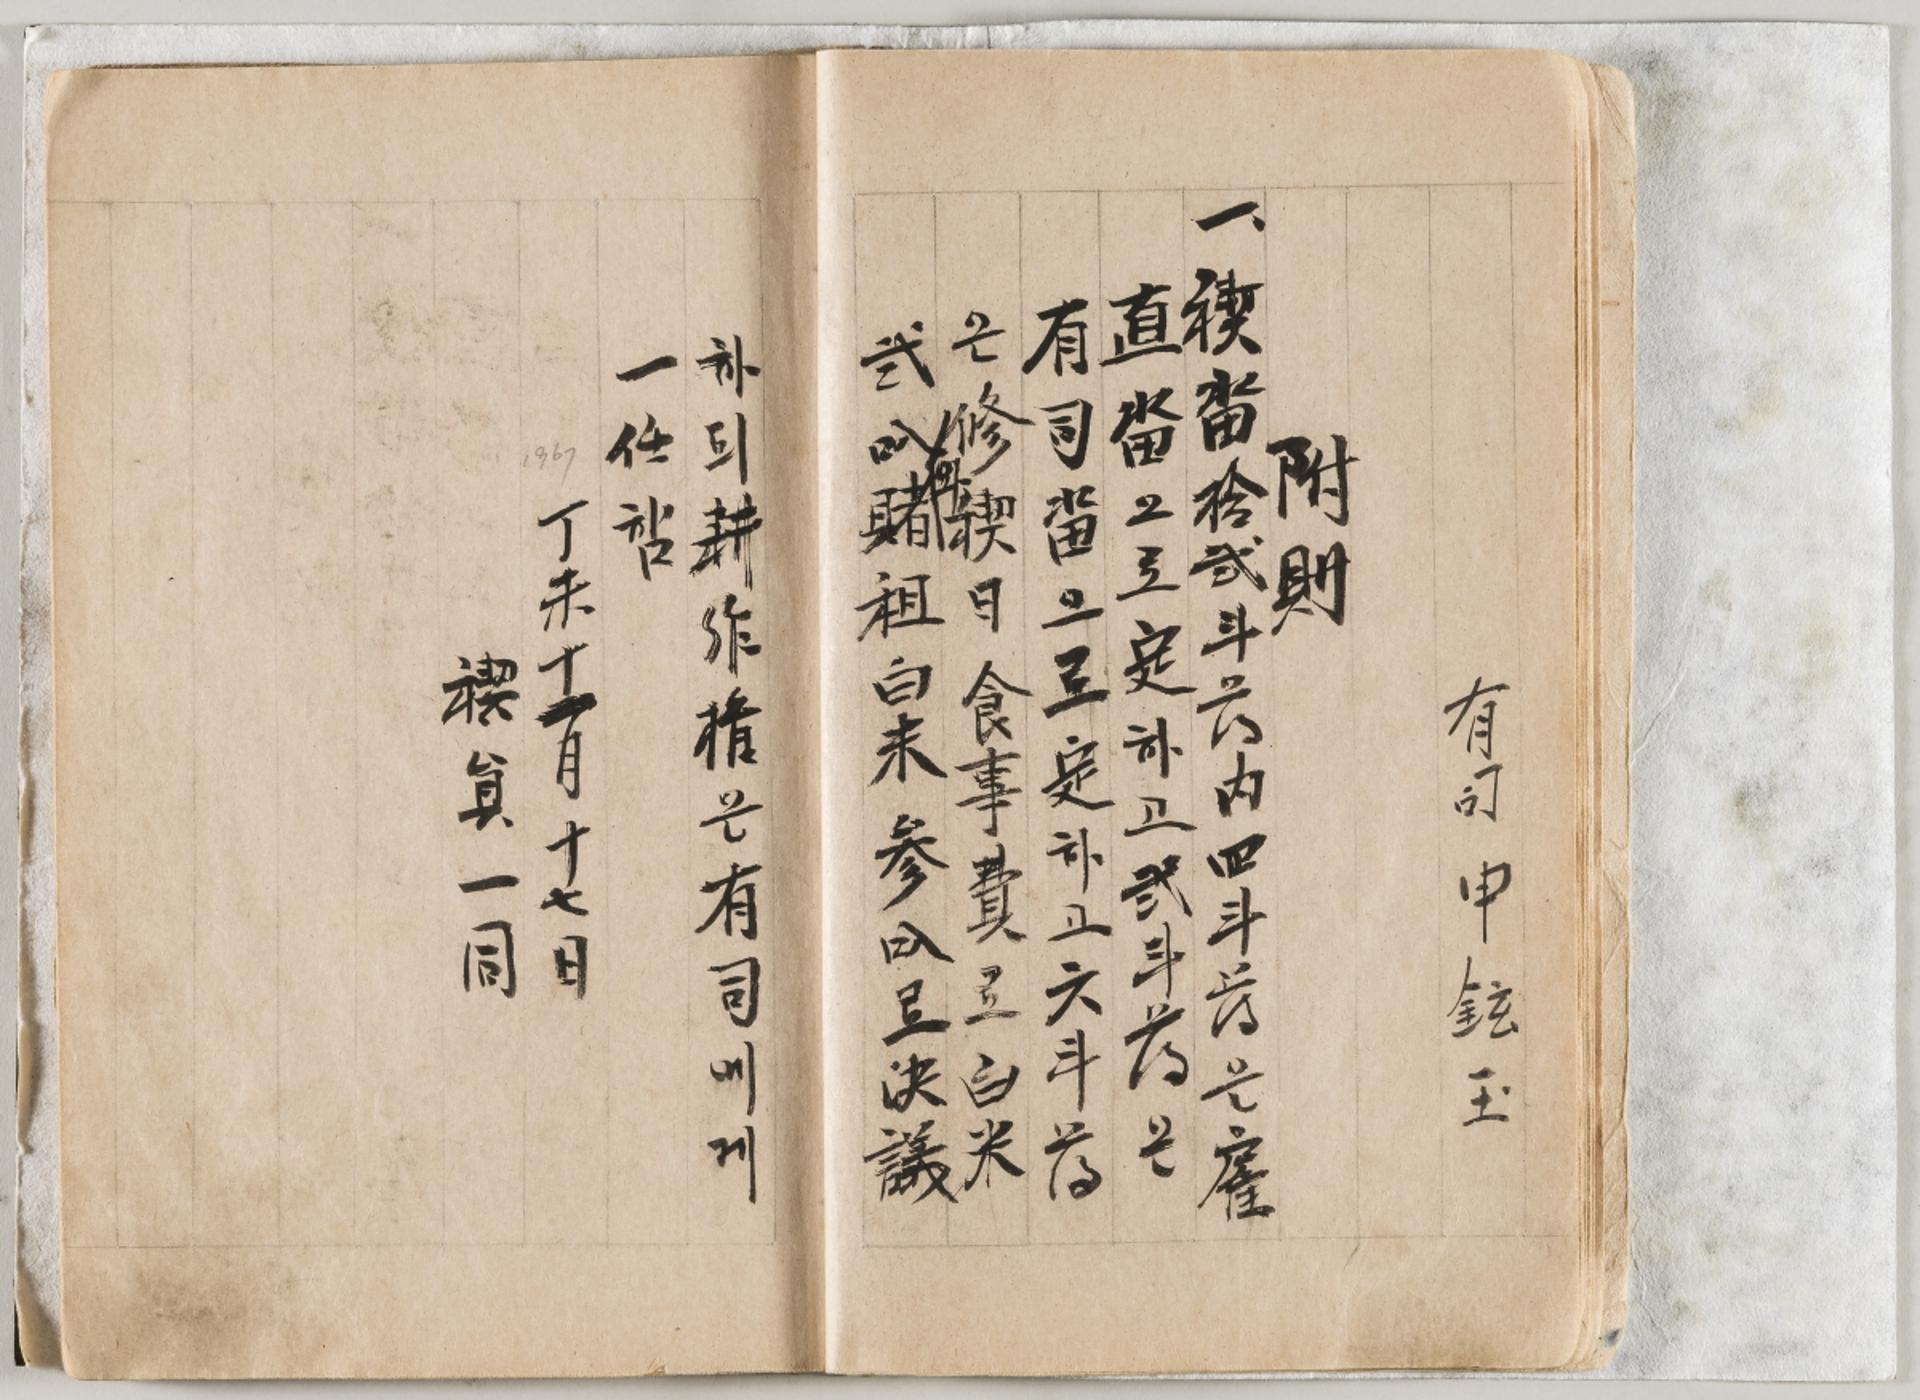 有司 申鉉玉
附則
一、禊畓拾弍斗落内四斗落은雇
直畓으로定하고弍斗落은
有司畓으로定하고六斗落
은修禊日食事費로白米
弍叺賭租白米参叺로决議
하되耕作権은有司에게
一任함
1967
丁未十一月十七日
禊員一同